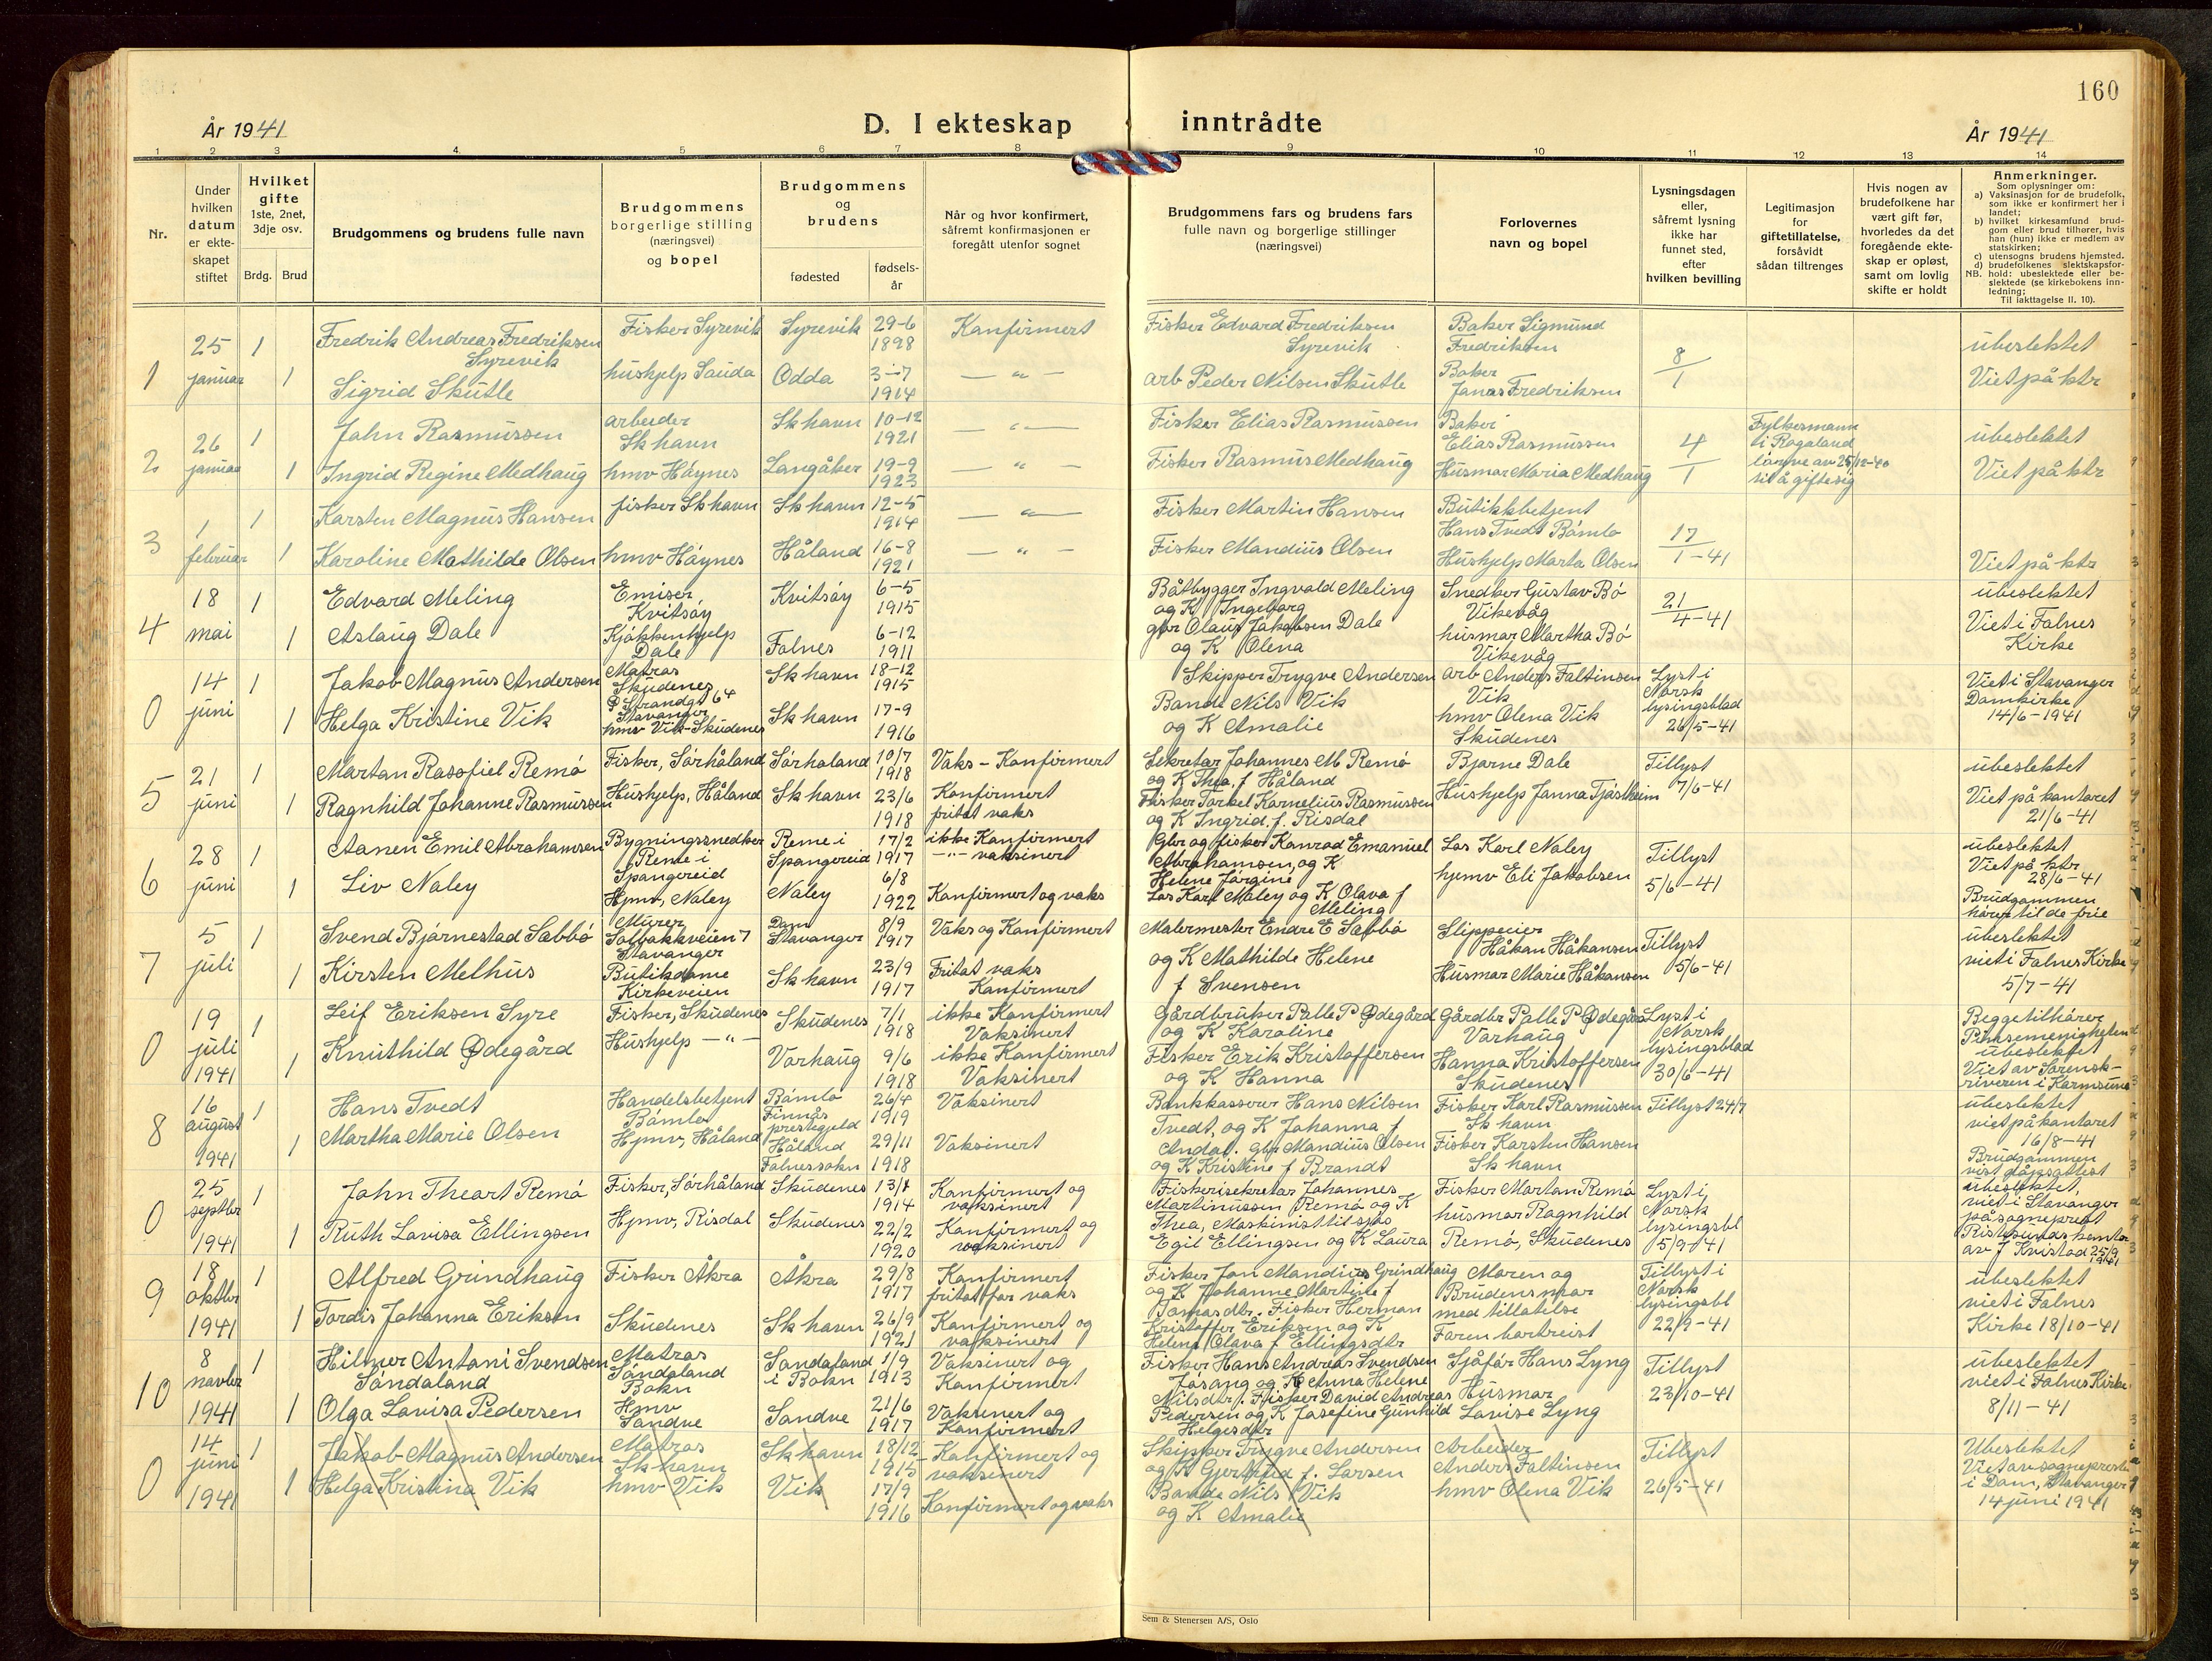 160
År 1941
D. I ekteskap inntrådte
År 1941
1 2 3 4. 5 6 7 8 9 10 11 12 13 14
Nr.
Under hvilken datum er ekteskapet stiftet
Hvilket gifte 1ste, 2net, 3dje osv.
Brdg. Brud
Brudgommens og brudens fulle navn
Brudgommens borgerlige stilling (næringsvei) og bopel
Brudgommens og brudens
fødested
fødsels-år
Når og hvor konfirmert, såfremt konfirmasjonen er foregått utenfor sognet
Brudgommens fars og brudens fars fulle navn og borgerlige stillinger (næringsvei)
Forlovernes navn og bopel
Lysningsdagen eller, såfremt lysning ikke har funnet sted, efter hvilken bevilling
Legitimasjon for giftetillatelse, forsåvidt sådan tiltrenges
Hvis nogen av brudefolkene har vært gift før, hvorledes da det foregående ekteskap er opløst, samt om lovlig skifte er holdt
Anmerkninger.
Som oplysninger om:
a) Vaksinasjon for de brudefolk, som ikke er konfirmert her i landet;
b) hvilket kirkesamfund brudgom eller brud tilhører, hvis han (hun) ikke er medlem av statskirken;
c) utensogns brudens hjemsted.
d) brudefolkenes slektskapsforhold: ubeslektede eller beslektede (se kirkebokens innledning;
NB.
Til iakttagelse II. 10).
1
25 januar
1 1
Fredrik Andreas Fredriksen Syrevik
Sigrid Skutle
Fisker Syrevik
hushjelp Sauda
Syrevik 29-6 1898
Odda 3-7 1914
Konfirmert
— " —
Fisker Edvard Fredriksen Syrevik
arb Peder Nilsen Skutle
Baker Sigmund Fredriksen
Baker Jonas Fredriksen
8/1
ubeslektet
Viet på ktr
2
26 januar
1 1
John Rasmussen
Ingrid Regine Medhaug
arbeider Skhavn
hmv Høynes
Skhavn 10-12 1921
Langåker 19-9 1923
— " —
— " —
Fisker Elias Rasmussen
Fisker Rasmus Medhaug
Baker Elias Rasmussen
Husmor Maria Medhaug
4/1
Fylkesmann i Rogaland
av 25/12-40 til å gifte sig
ubeslektet
Viet på ktr
3
1 februar
1 1
Karsten Magnus Hansen
Karoline Mathilde Olsen
fisker Skhavn
hmv Høynes
Skhavn 12-5 1914
Håland 16-8 1921
— " —
— " —
Fisker Martin Hansen
Fisker Mandius Olsen
Butikkbetjent Hans Tvedt Bømlo
Hushjelp Marta Olsen
17/1-41
Viet på ktr
4
18 mai
1 1
Edvard Meling
Aslaug Dale
Kvitsøy
Kjøkkenhjelp Dale
Kvitsøy 6-5 1915
Falnes 6-12 1911
Båtbygger Ingvald Meling og K Ingeborg
gbr Olaus Jakobsen Dale og K Olena
Snedker Gustav Bø Vikevåg
husmor Martha Bø Vikevåg
21/4-41
ubeslektet
Viet i Falnes Kirke
0
14 juni
1 1
Jakob Magnus Andersen
Helga Kristine Vik
Matros Skudenes
Strandgt 64 Stavanger
hmv Vik-Skudenes
Skhavn 18-12 1915
Skhavn 17-9 1916
Skipper Trygve Andersen
Bonde Nils Vik og K Amalie
arb Anders Faltinsen Vik
hmv Olena Vik Skudenes
Lyst i Norsk lysingsblad 26/5-41
Viet i Stavanger Domkirke 14/6-1941
5
21 juni
1 1
Martan Rassfiel Remø
Ragnhild Johanne Rasmussen
Fisker, Sørhåland
Hushjelp, Håland
Sørhåland 10/7 1918
Skhavn 23/6 1918
Vaks - Konfirmert
Konfirmert fritat vaks
Sekretær Johannes M Remø og K Thea, f Håland
Fisker Torkel Kornelius Rasmussen og K Ingrid f. Risdal
Bjarne Dale
Hushjelp Janna Tjøstheim
Tillyst 7/6-41
ubeslektet
Viet på kontoret 21/6-41
6
28 juni
1 1
Aanen Emil Abrahamsen
Liv Naley
Bygningssnedker Reme i Spangereid
Hjmv, Naley
Reme i Spangereid 17/2 1917
Naley 6/8 1922
ikke Konfirmert
— " — vaksinert
Konfirmert og vaks
Gbr og fisker Konrad Emanuel Abrahamsen, og K Helene Jørgine
Los Karl Naley og K Olava f Meling
Los Karl Naley
hjemv Eli Jakobsen
Tillyst 5/6-41
ubeslektet
Viet på ktr 28/6-41
Brudgommen hører til de frie
7
5 juli
1 1
Svend Bjørnestad Sæbbø
Kirsten Melhus
Murer Solbakkveien 7 Stavanger
Butikdame Kirkeveien
Dom Stavanger 8/9 1917
Skhavn 23/9 1917
Vaks og Konfirmert
Fritat vaks Konfirmert
Malermester Endre E Sæbbø og K Mathilde Helene f Svensen
Håkon Håkonsen
Husmor Marie Håkonsen
Tillyst 5/6-41
ubeslektet
viet i Falnes Kirke 5/7-41
0
19 juli 1941
1 1
Leif Eriksen Syre
Knuthild Ødegård
Fisker, Skudenes
Hushjelp — " —
Skudenes 7/1 1918
Varhaug 9/6 1918
ikke Konfirmert Vaksinert
ikke Konfirmert Vaksinert
Gårdbruker Palle P Ødegård og K Karoline
Fisker Erik Kristoffersen og K Hanna
Gårdbr Palle P Ødegård Varhaug
Hanna Kristoffersen Skudenes
Lyst i Norsk lysingsblad 30/6-41
Begge tilhører Pinsemenigheten
ubeslektet
Viet av Sorenskriveren i Karmsund
8
16 august 1941
1 1
Hans Tvedt
Martha Marie Olsen
Handelsbetjent Bømlo
Hjmv, Håland
Bømlo Finnås prestegjeld 26/4 1919
Håland Falnes sokn 29/11 1918
Vaksinert
Vaksinert
Bankkasserer Hans Nilsen Tvedt, og K Johanna f Andal.
Gbr Mandius Olsen og K Kristine f Brandt
Fisker Karl Rasmussen Skhavn
Fisker Karsten Hansen Skhavn
Tillyst 24/7
ubeslektet
viet på kontoret 16/8-41
Brudgommen
0
25 septbr 1941
1 1
John Theart Remø
Ruth Lovisa Ellingsen
Fisker, Sørhåland
Hjmv, Risdal
Skudenes 1914
Skudenes 22/2 1920
Konfirmert og vaksinert
Konfirmert og vaksinert
Fiskerisekretær Johannes Martinussen Remø og K Thea,
Maskinist til sjøs Egil Ellingsen og K Laura
Fisker Martan Remø
husmor Ragnhild Remø, Skudenes
Lyst i Norsk lysingsbl 5/9-41
ubeslektet
viet i Stavanger på sogneprest
av J Kvistad 25/9 1941
9
18 oktbr 1941
1 1
Alfred Grindhaug
Tordis Johanna Eriksen
Fisker Åkra
Skudenes
Åkra 29/8 1917
Skhavn 26/9 1921
Konfirmert fritat for vaks
Konfirmert og vaksinert
Fisker Jon Mandius Grindhaug og K Johanne Martine f Tomasdtr.
Fisker Herman Kristoffer Eriksen og K Helene Olava f Ellingsdtr
Moren og Brudens mor med tillatelse
Faren bortreist
Tillyst i Norsk lysingsbl 22/9-41
ubeslektet
viet i Falnes Kirke 18/10-41
10
8 novbr 1941
1 1
Hilmer Antoni Svendsen Søndaland
Olga Lovisa Pedersen
Matros Søndaland Bokn
Hmv Sandve
Søndaland i Bokn 1/9 1913
Sandve 21/6 1917
Vaksinert og Konfirmert
Vaksinert og Konfirmert
Fisker Hans Andreas Svendsen Jøsang og K Anna Helene Nilsdtr.
Fisker David Andreas Pedersen og K Josefine Gunhild Helgesdtr
Sjåfør Hans Lyng
Husmor Lovise Lyng
Tillyst 23/10-41
ubeslektet
viet i Falnes Kirke 8/11-41
0
14 juni 1941
1 1
Jakob Magnus Andersen
Helga Kristina Vik
Matros Skhavn
hmv Vik
Skhavn 18/12 1915
Vik 17/9 1916
Konfirmert og vaksinert
Konfirmert og vaks
Skipper Trygve Andersen og K Gjertrud f. Larsen
Bonde Nils Vik og K Amalie
Arbeider Anders Faltinsen
hmv Olena Vik
Tillyst 26/5-41
Ubeslektet
Viet av sogneprest i Dom, Stavanger 14 juni 1941
Sem & Stenersen A/S, Oslo